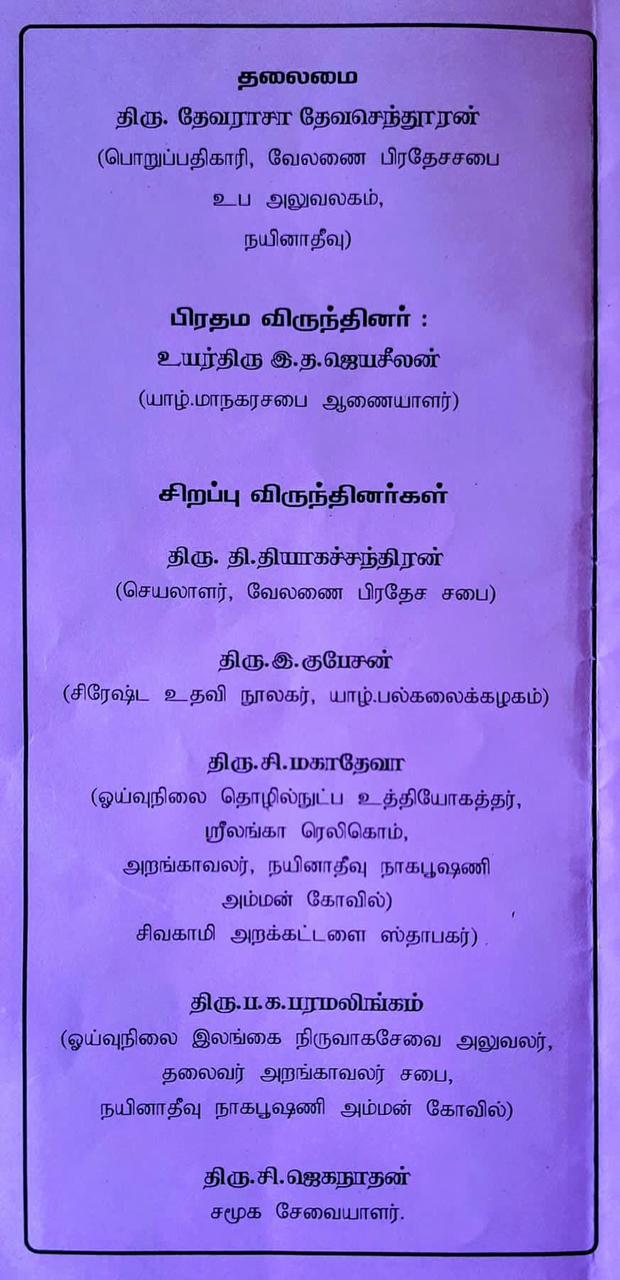 தலைமை
திரு. தேவராசா தேவசெந்தூரன்
(பொறுப்பதிகாரி, வேலணை பிரதேசசபை
உப அலுவலகம்,
நயினாதீவு)
பிரதம விருந்தினர் :
உயர்திரு இ.த.ஜெயசீலன்
(யாழ்.மாநகரசபை ஆணையாளர்)
சிறப்பு விருந்தினர்கள்
திரு. தி.தியாகச்சந்திரன்
(செயலாளர், வேலணை பிரதேச சபை)
திரு.இ.குபேசன்
(சிரேஷ்ட உதவி நூலகர், யாழ்.பல்கலைக்கழகம்)
திரு.சி.மகாதேவா
(ஓய்வுநிலை தொழில்நுட்ப உத்தியோகத்தர்,
ஸ்ரீலங்கா ரெலிகொம்,
அறங்காவலர், நயினாதீவு நாகபூஷணி
அம்மன் கோவில்)
சிவகாமி அறக்கட்டளை ஸ்தாபகர்)
திரு.ப.க.பரமலிங்கம்
(ஓய்வுநிலை இலங்கை நிருவாகசேவை அலுவலர்,
தலைவர் அறங்காவலர் சபை,
நயினாதீவு நாகபூஷணி அம்மன் கோவில்)
திரு.சி.ஜெகநாதன்
சமூக சேவையாளர்.